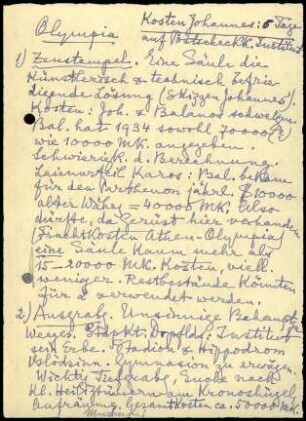 Kosten Johannes: 5 Tage
Olympia auf Botscheck k. Institut
1) Zeustempel. Eine Säule die
künstlerisch & technisch befrie-
digende Lösung (Skizzen Johannes).
Kosten: Joh. & Balanos schweigen
Bal. hat 1934 sowohl 70000 (?)
wie 10000 MK. angegeben.
Schwierigk. d. Berechnung.
Laienurteil Karos: Bal. bekam
für den Parthenon jährl. £ 10000
alter Währg = 40000 MK. Also
dürfte, da Gerüst hier vorhanden
(Frachtkosten Athen-Olympia)
eine Säule kaum mehr als
15-20000 MK. kosten, viell.
weniger. Restbestände könnten
für 2 verwendet werden.
2) Ausgrab. Unsinnige Behaupt.
Dörpflds: Institut
sein Erbe. Stadion & Hippodrom
Gymnasion zu erwägen.
Wichtig Tiefgrabg, Suche nach
kl. Heiligtümern am Kronoshügel
Aufräumung. Gesamtkosten ca. 50000 MK.